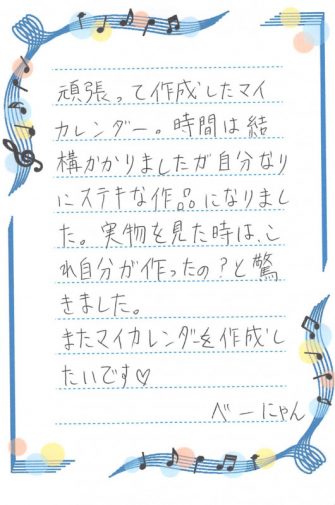 頑張って作成したマイ
カレンダー。時間は結
構かかりましたが自分なり
にステキな作品になりまし
た。実物を見た時は、こ
れ自分が作ったの?と驚
きました。
またマイカレンダーを作成し
たいです♡
べーにゃん